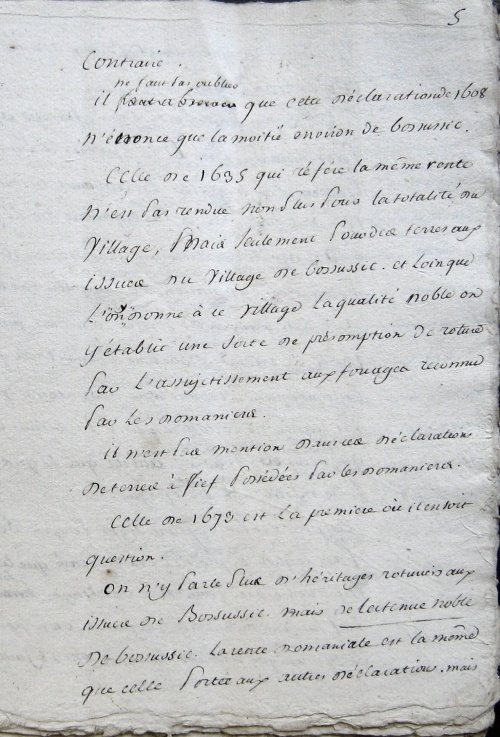 5
Contraire.
ne faut pas oublier
il que cette déclaration de 1608
n'énonce que la moitié environ de bossussic.
Celle de 1635 qui réfère la même rente
n'est pas rendue non plus pour la totalité du
village, mais seulement pour des terres aux
issues du village de bossussic. et loin que
L'on y donne à ce village la qualité noble on
y établit une sorte de présomption de roture
par L'assujetissement aux fouages reconnu
par Les domaniers.
il n'est pas mention dans ces déclarations
de terres à fief possédées par les domaniers.
Celle de 1673 est La premiere où il en soit
question.
On n'y parle plus d'héritages roturiers aux
issues de Bossussic. mais de la tenue noble
de bossussic. La rente domaniale est la même
que celle portée aux autres déclarations. mais